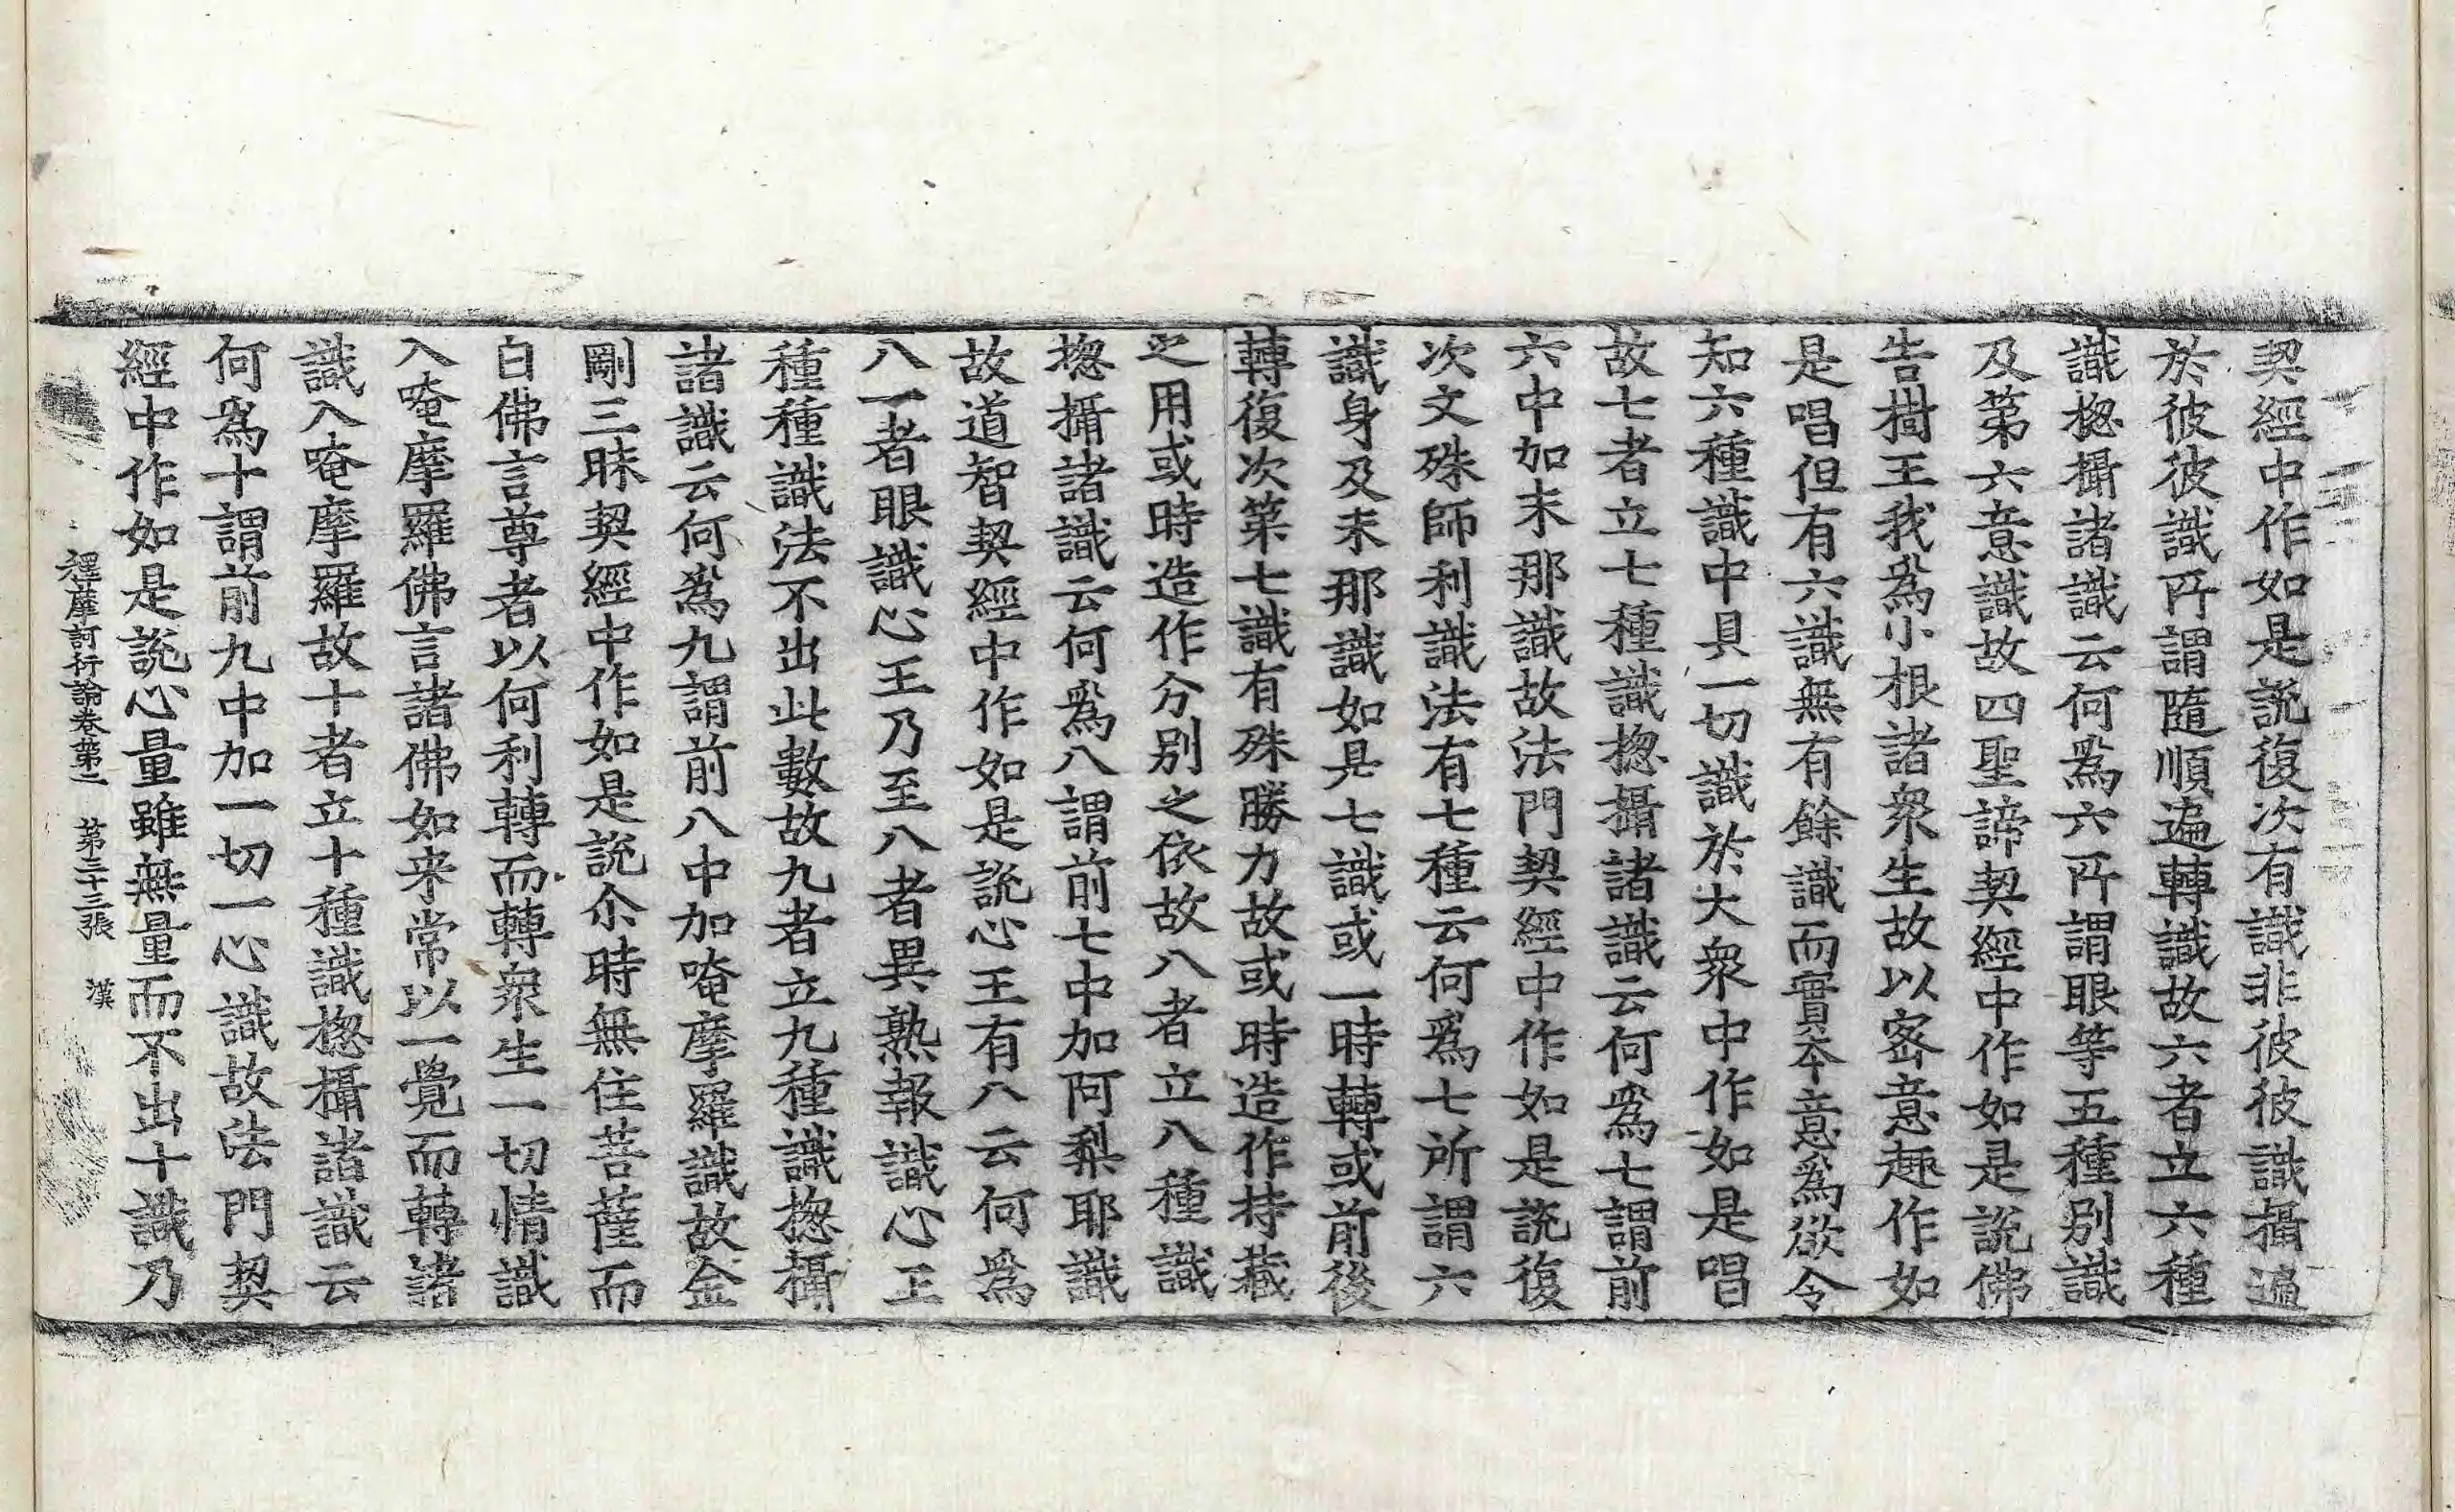 契經中作如是說復次有識非彼彼識攝遍
於彼彼識所謂隨順遍轉識故六者立六種
識摠攝諸識云何爲六所謂眼等五種別識
及第六意識故四聖諦契經中作如是說佛
告樹王我爲小根諸衆生故以密意趣作如
是唱但有六識無有餘識而實本意爲欲令
知六種識中具一切識於大衆中作如是唱
故七者立七種識摠攝諸識云何爲七謂前
六中加末那識故法門契經中作如是說復
次文殊師利識法有七種云何爲七所謂六
識身及末那識如是七識或一時轉或前後
轉復次第七識有殊勝力故或時造作持藏
之用或時造作分別之依故八者立八種識
摠攝諸識云何爲八謂前七中加阿梨耶識
故道智契經中作如是說心王有八云何爲
八一者眼識心王乃至八者異熟報識心王
種種識法不出此數故九者立九種識摠攝
諸識云何爲九謂前八中加唵摩羅識故金
剛三昧契經中作如是說尒時無住菩薩而
白佛言尊者以何利轉而轉衆生一切情識
入唵摩羅佛言諸佛如來常以一覺而轉諸
識入唵摩羅故十者立十種識摠攝諸識云
何爲十謂前九中加一切一心識故法門契
經中作如是說心量雖無量而不出十識乃
釋摩訶衍論卷第二　第三十三張　漢